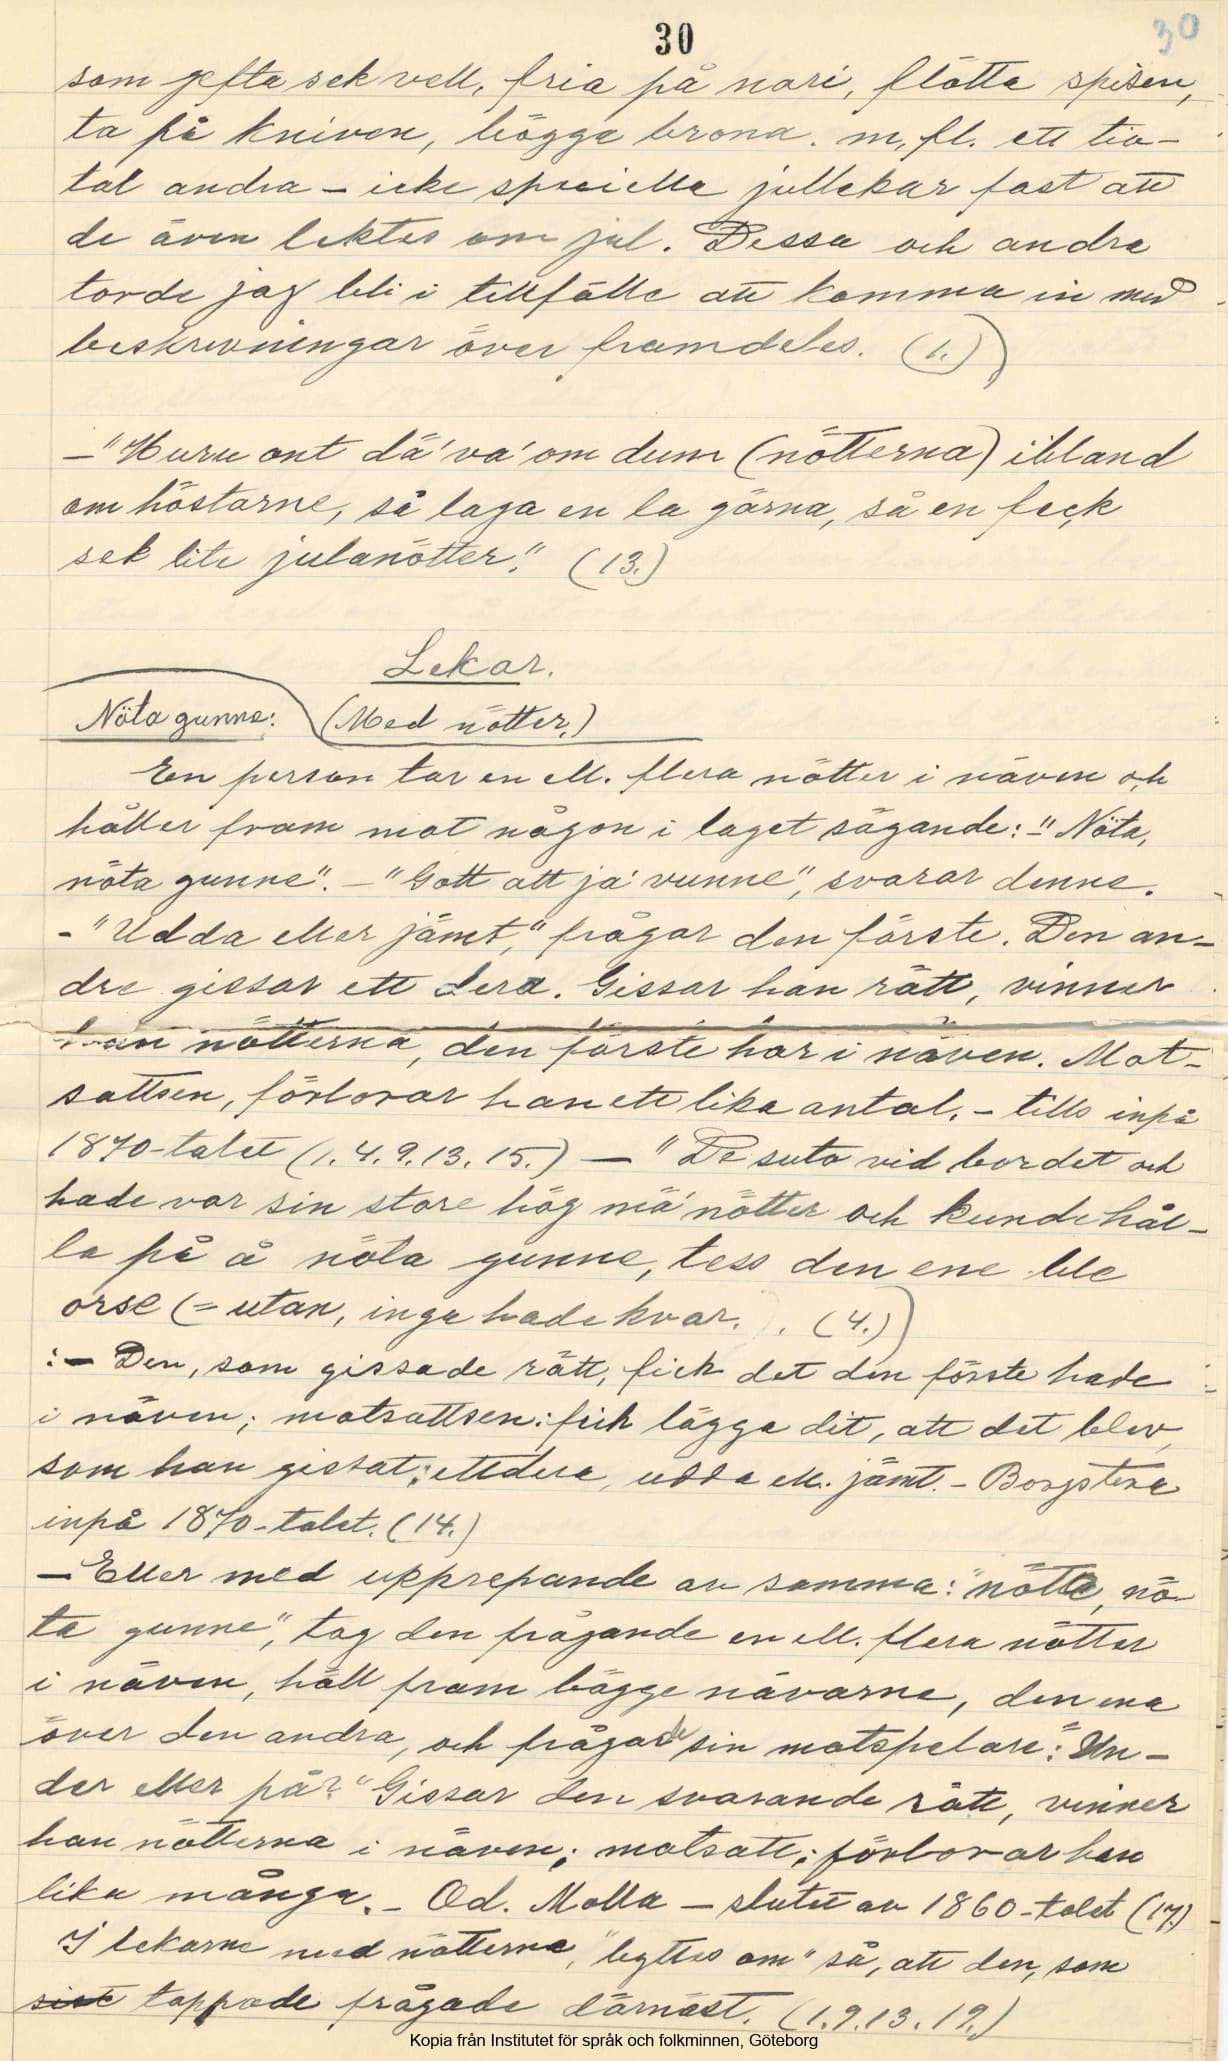 30 30
som jefta sek vell, fria på nari, flötta spisen,
ta på kniven, högga brona. m, fl. ett tio-
tal andra - icke speciella jullekar fast att
de även lektes om jul. Dessa och andra
torde jag bli i tillfälle att komma in med
beskrivningar över framdeles. (1.)
- "Huru ont dä' va' om dum (nötterna) ibland
om höstarne, så laga en la gärna, så en feck
sek lite julanötter." (13.)
Lekar.
Nöta gunne: (Med nötter.)
En person tar en ell. flera nötter i näven och
håller fram mot någon i laget sägande: - "Nöta,
nöta gunne". - "Gott att ja' vunne", svarar denne.
- "Udda eller jämt", frågar den förste. Den an-
dre gissar ett dera. Gissar han rätt, vinner
han nötterna, den förste har i näven. Mot-
sattsen, förlorar han ett lika antal. - tills inpå
1870-talet (1. 4. 9. 13. 15.) - "De suto vid bordet och
hade var sin store hög mä' nötter och kunde hål-
la på å nöta gunne, tess den ene ble
orse (= utan, inga hade kvar. ). (4.)
: - Den, som gissade rätt, fick det den förste hade
i näven; motsattsen: fick lägga dit, att det blev,
som han gissat; ettdera, udda ell. jämt. - Borgstena
inpå 1870-talet. (14.)
- Eller med upprepande av samma: "nöta, nö-
ta gunne", tog den frågande en ell. flera nötter
i näven, höll fram bägge nävarne, den ena
över den andra, och frågade sin motspelare: "Un-
der eller på?" Gissar den svarande rätt, vinner
han nötterna i näven; motsatt; förlorar han
lika många. - Od. Molla - slutet av 1860-talet (17.)
I lekarne med nötterne, "byttes om" så, att den, som
sist tappade frågade därnäst. (1. 9. 13. 19.)
Kopia från Institutet för språk och folkminnen, Göteborg